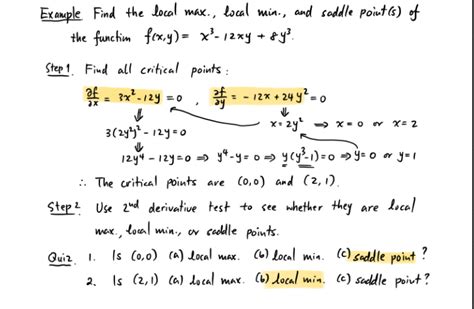 Example Find the local max., local min., and saddle point(s) of
the function f(x,y) = x³ - 12xy + 8y³.
Step 1. Find all critical points :
∂f/∂x = 3x² - 12y = 0 , ∂f/∂y = - 12x + 24y² = 0
⇓ ⇓
3(2y²)² - 12y = 0 x = 2y² ⇒ x = 0 or x = 2
⇓
12y⁴ - 12y = 0 ⇒ y⁴ - y = 0 ⇒ y(y³-1) = 0 ⇒ y = 0 or y = 1
∴ The critical points are (0,0) and (2,1).
Step 2. Use 2nd derivative test to see whether they are local
max., local min., or saddle points.
Quiz 1. Is (0,0) (a) local max. (b) local min. (c) saddle point ?
2. Is (2,1) (a) local max. (b) local min. (c) saddle point ?